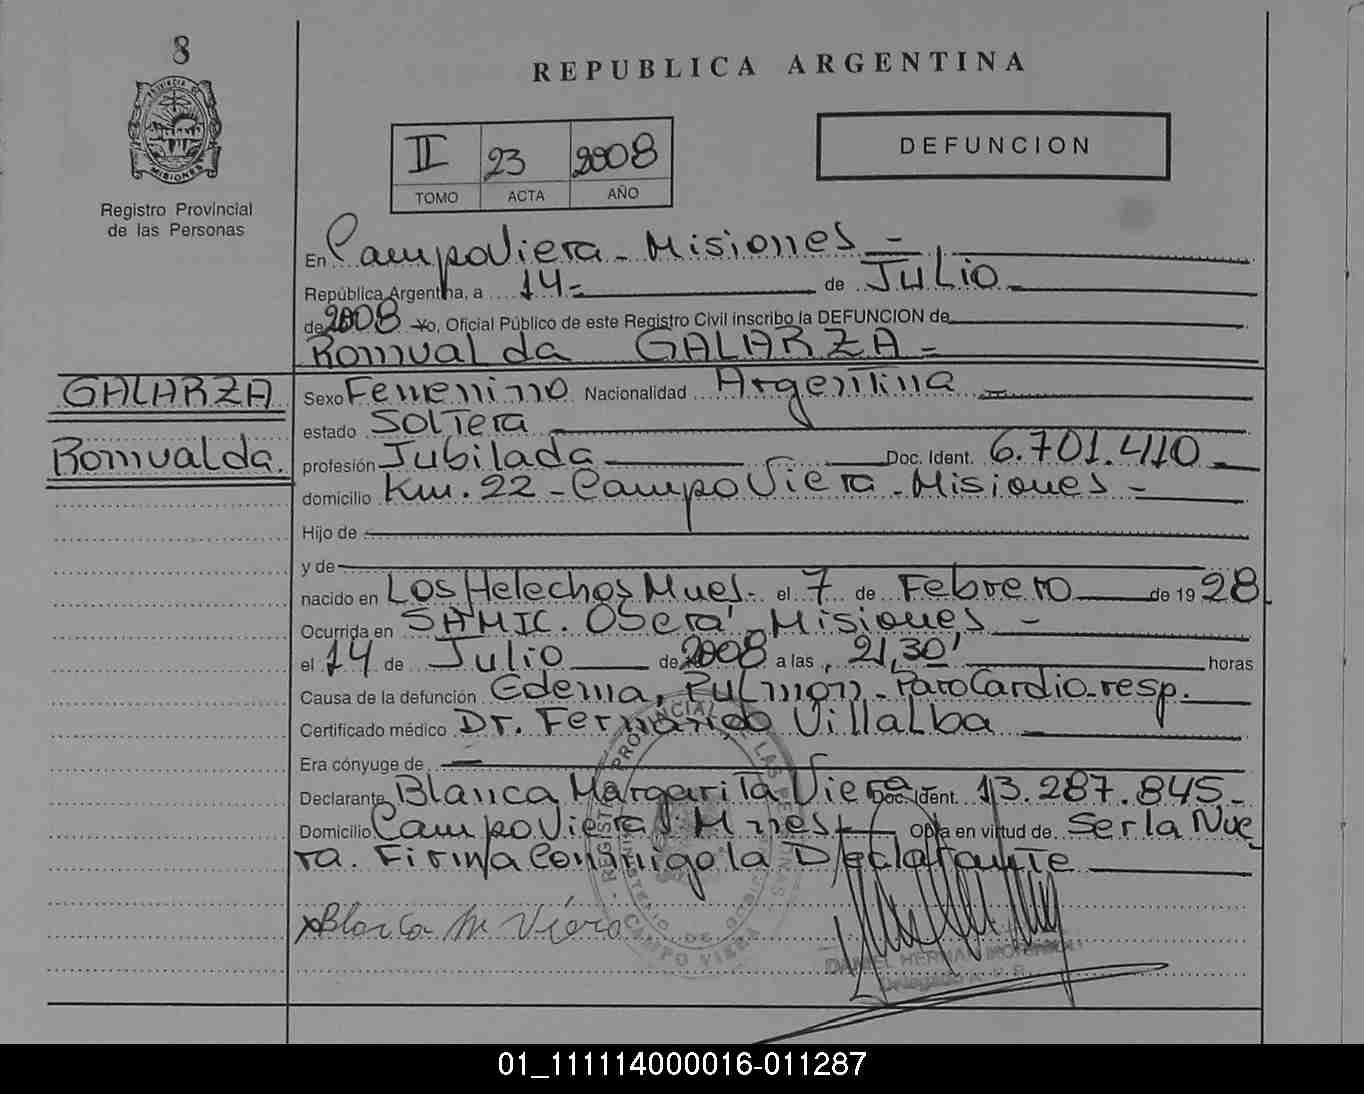 8
REPUBLICA ARGENTINA
PROVINCIA DE
MISIONES
Registro Provincial
de las Personas
II 23 2008
TOMO ACTA AÑO
DEFUNCION
En Campo Viera - Misiones -
República Argentina, a 14 - de Julio -
de 2008 Yo, Oficial Público de este Registro Civil inscribo la DEFUNCION de
Romualda GALARZA -
GALARZA
Romualda.
Sexo Femenino Nacionalidad Argentina -
estado Soltera
profesión Jubilada Doc. Ident. 6.701.410 -
domicilio Km. 22 - Campo Viera - Misiones -
Hijo de
y de
nacido en Los Helechos Mnes - el 7 de Febrero de 1928
Ocurrida en SAMIC. Oberá - Misiones -
el 14 de Julio de 2008 a las 21,30' horas
Causa de la defunción Edema, Pulmón - Paro Cardio-resp.
Certificado médico Dr. Fernando Villalba
Era cónyuge de
Declarante Blanca Margarita Viera Doc. Ident. 13.287.845 -
Domicilio Campo Viera Mnes - Obra en virtud de Ser la Nue
ra. Firma Conmigo la Declarante
xBlanca M Viera
CAMPO VIERA
DANIEL HERNAN
Delegado R. P. P.
01_111114000016-011287